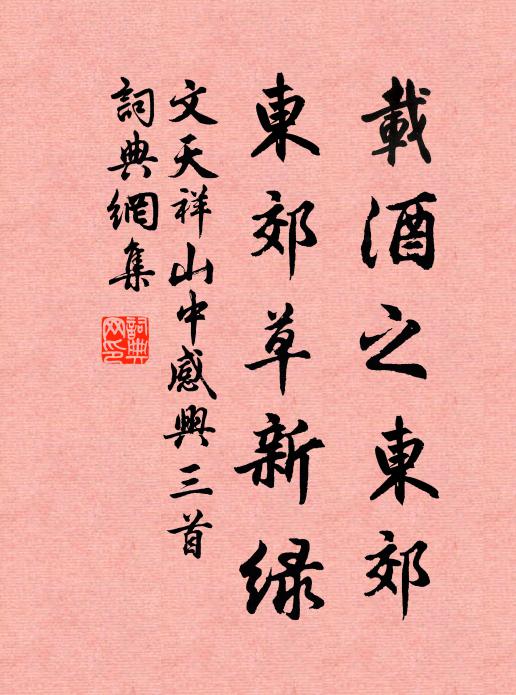 載酒之東郊
東郊草新綠
文天祥山中感興三首
詞典網集
詞典网印